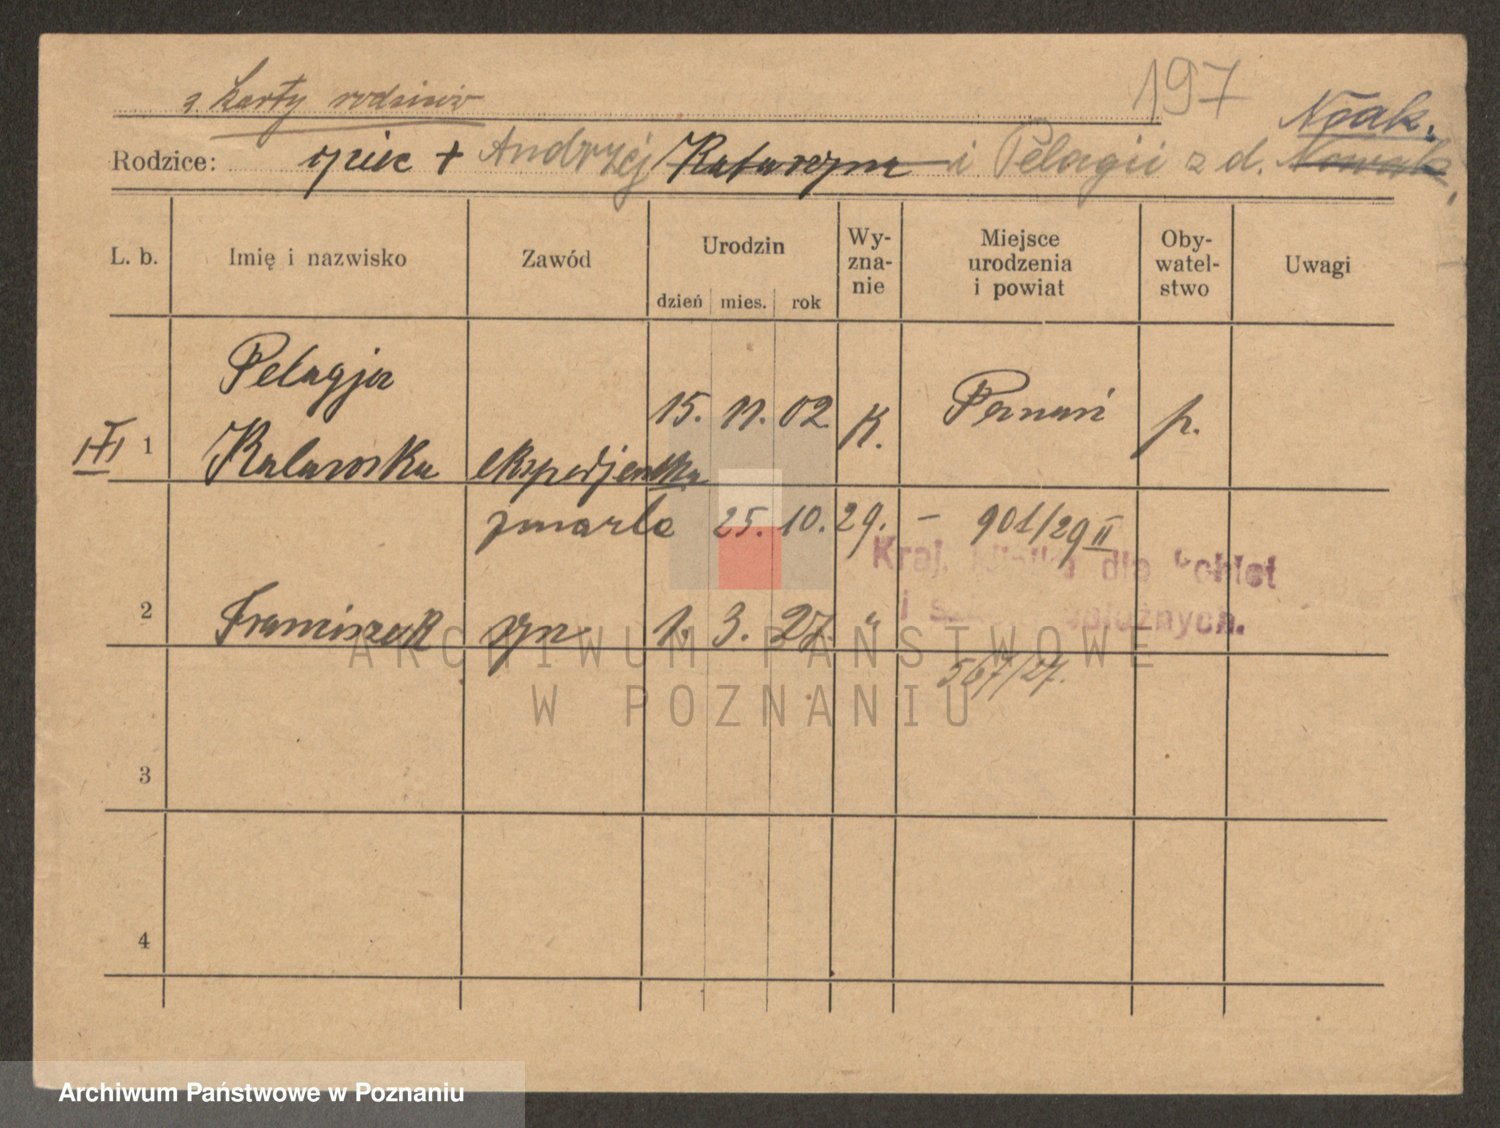 197
z karty rodziców
Noak.
Rodzice: ojciec + Andrzej Katarzyna i Pelagii z d. Nowak.
L. b. Imię i nazwisko Zawód Urodzin dzień mies. rok Wy-zna-nie Miejsce urodzenia i powiat Oby-watel-stwo Uwagi
Pelagja
1 ekspedjentka 15. 11. 02 K. Poznań p.
zmarła 25. 10. 29. – 901/29 II
Kraj. dla kobiet
2 Franciszek syn 1. 3. 27. "
i
567/27.
3
4
ARCHIWUM PAŃSTWOWE
W POZNANIU
Archiwum Państwowe w Poznaniu